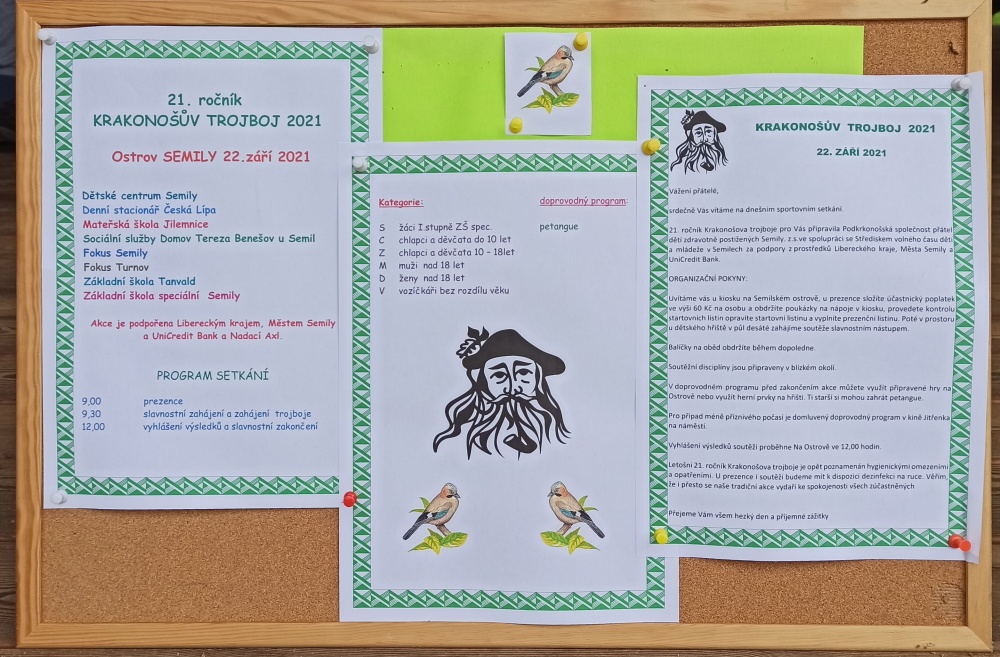 21. ročník
KRAKONOŠŮV TROJBOJ 2021
Ostrov SEMILY 22.září 2021
Dětské centrum Semily
Denní stacionář Česká Lípa
Mateřská škola Jilemnice
Sociální služby Domov Tereza Benešov u Semil
Fokus Semily
Fokus Turnov
Základní škola Tanvald
Základní škola speciální Semily
Akce je podpořena Libereckým krajem, Městem Semily
a UniCredit Bank a Nadací Axl.
PROGRAM SETKÁNÍ
9,00 prezence
9,30 slavnostní zahájení a zahájení trojboje
12,00 vyhlášení výsledků a slavnostní zakončení
Kategorie: doprovodný program:
S žáci I.stupně ZŠ spec. petangue
C chlapci a děvčata do 10 let
Z chlapci a děvčata 10 – 18let
M muži nad 18 let
D ženy nad 18 let
V vozíčkáři bez rozdílu věku
KRAKONOŠŮV TROJBOJ 2021
22. ZÁŘÍ 2021
Vážení přátelé,
srdečně Vás vítáme na dnešním sportovním setkání.
21. ročník Krakonošova trojboje pro Vás připravila Podkrkonošská společnost přátel
dětí zdravotně postižených Semily, z.s.ve spolupráci se Střediskem volného času dětí
a mládeže v Semilech za podpory z prostředků Libereckého kraje, Města Semily a
UniCredit Bank.
ORGANIZAČNÍ POKYNY:
Uvítáme vás u kiosku na Semilském ostrově, u prezence složíte účastnický poplatek
ve výši 60 Kč na osobu a obdržíte poukázky na nápoje v kiosku, provedete kontrolu
startovních listin opravíte startovní listinu a vyplníte prezenční listinu. Poté v prostoru
u dětského hřiště v půl desáté zahájíme soutěže slavnostním nástupem.
Balíčky na oběd obdržíte během dopoledne.
Soutěžní disciplíny jsou připraveny v blízkém okolí.
V doprovodném programu před zakončením akce můžete využít připravené hry na
Ostrově nebo využít herní prvky na hřišti. Ti starší si mohou zahrát petangue.
Pro případ méně příznivého počasí je domluvený doprovodný program v kině Jitřenka
na náměstí.
Vyhlášení výsledků soutěží proběhne Na Ostrově ve 12,00 hodin.
Letošní 21. ročník Krakonošova trojboje je opět poznamenán hygienickými omezeními
a opatřeními. U prezence i soutěží budeme mít k dispozici dezinfekci na ruce. Věřím,
že i přesto se naše tradiční akce vydaří ke spokojenosti všech zúčastněných
Přejeme Vám všem hezký den a příjemné zážitky